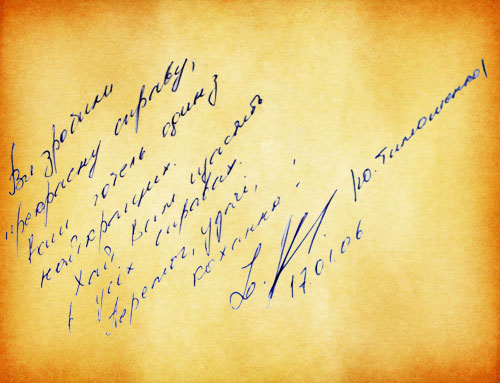 Ви зробили
прекрасну справу,
Ваш готель один з
найкращих.
Хай Вам щастить
в усіх справах.
Перемог, удачі,
кохання!
Ю. Тимошенко
17.01.06